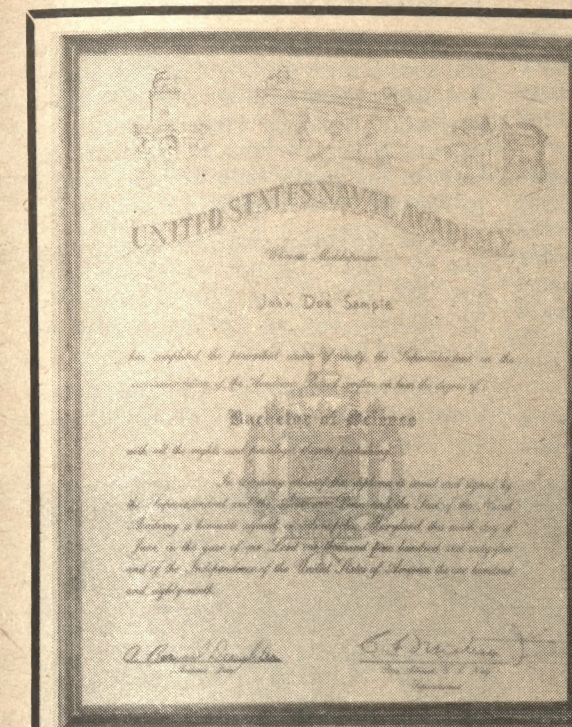 UNITED STATES NAVAL ACADEMY
Whereas Midshipman
John Doe Sample
has completed the prescribed course of study, the Superintendent on the
recommendation of the Academic Board confers on him the degree of
Bachelor of Science
with all the rights and privileges thereto pertaining.
In testimony whereof this diploma is issued and signed by
the Superintendent and the Academic Dean and the Seal of the Naval
Academy is hereunto affixed at Annapolis, Maryland this ninth day of
June in the year of our Lord one thousand nine hundred and sixty-five
and of the Independence of the United States of America the one hundred
and eighty-ninth.
Academic Dean
Rear Admiral, U. S. Navy
Superintendent